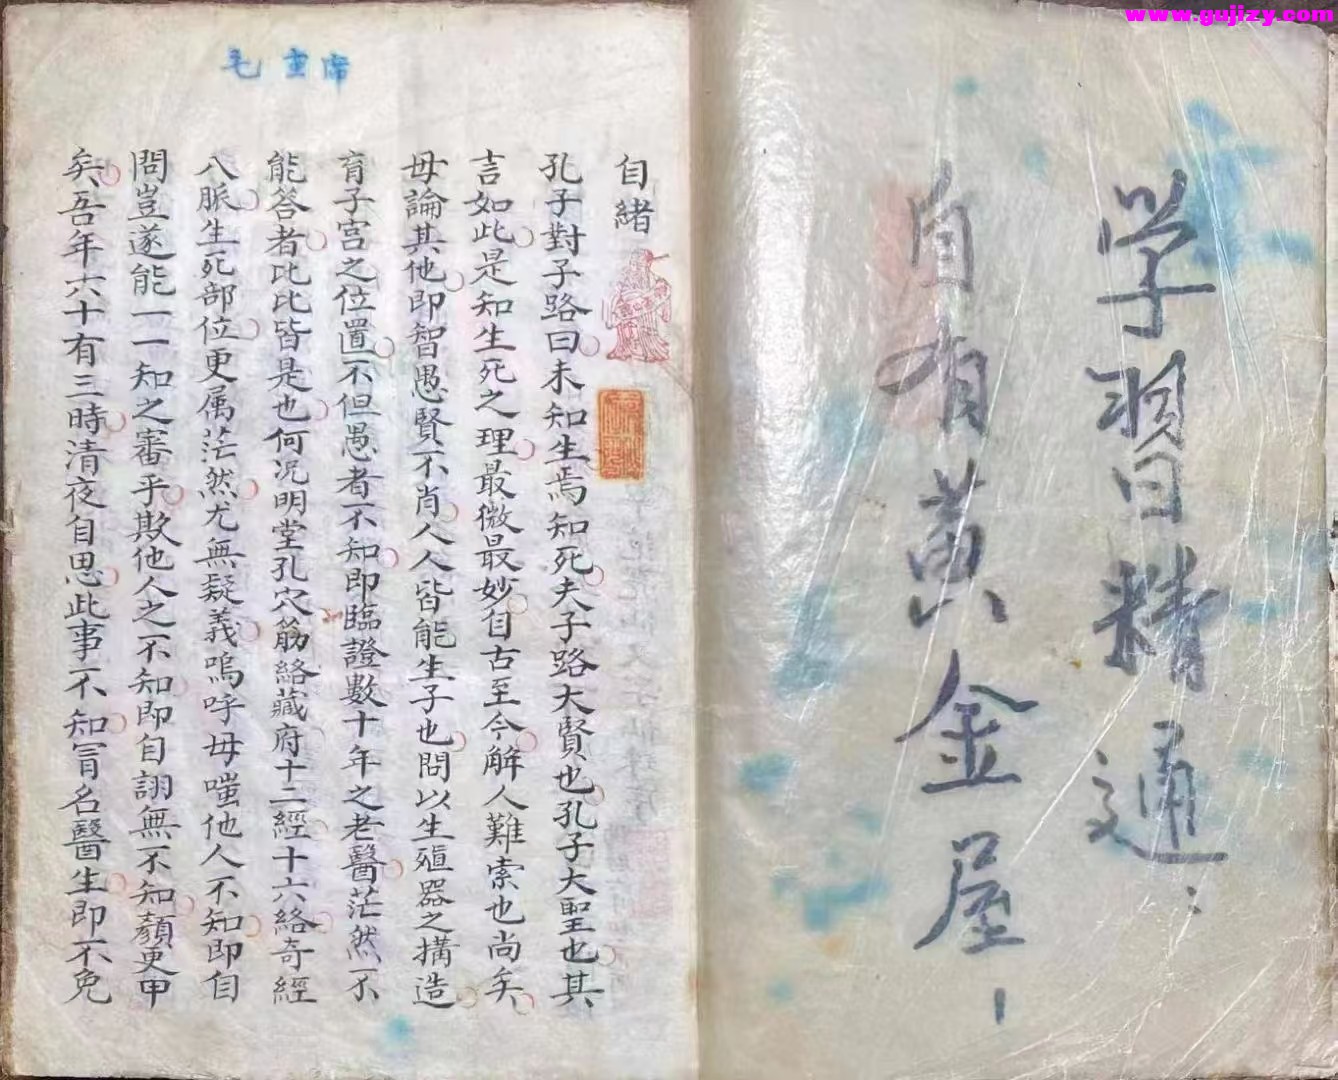 www.gujizy.com
学習精通
自有黄金屋
毛主席
自緒
孔子對子路曰未知生焉知死夫子路大賢也孔子大聖也其
言如此是知生死之理最微最妙自古至今解人難索也尚矣
毋論其他即智愚賢不肖人人皆能生子也問以生殖器之搆造
育子宮之位置不但愚者不知即臨證數十年之老醫茫然不
能答者比比皆是也何况明堂孔穴筋絡藏府十二經十六絡奇經
八脈生死部位更属茫然尤無疑義嗚呼毋嗤他人不知即自
問豈遂能一一知之審乎欺他人之不知即自詡無不知顏更甲
矣吾年六十有三時清夜自思此事不知冒名醫生即不免